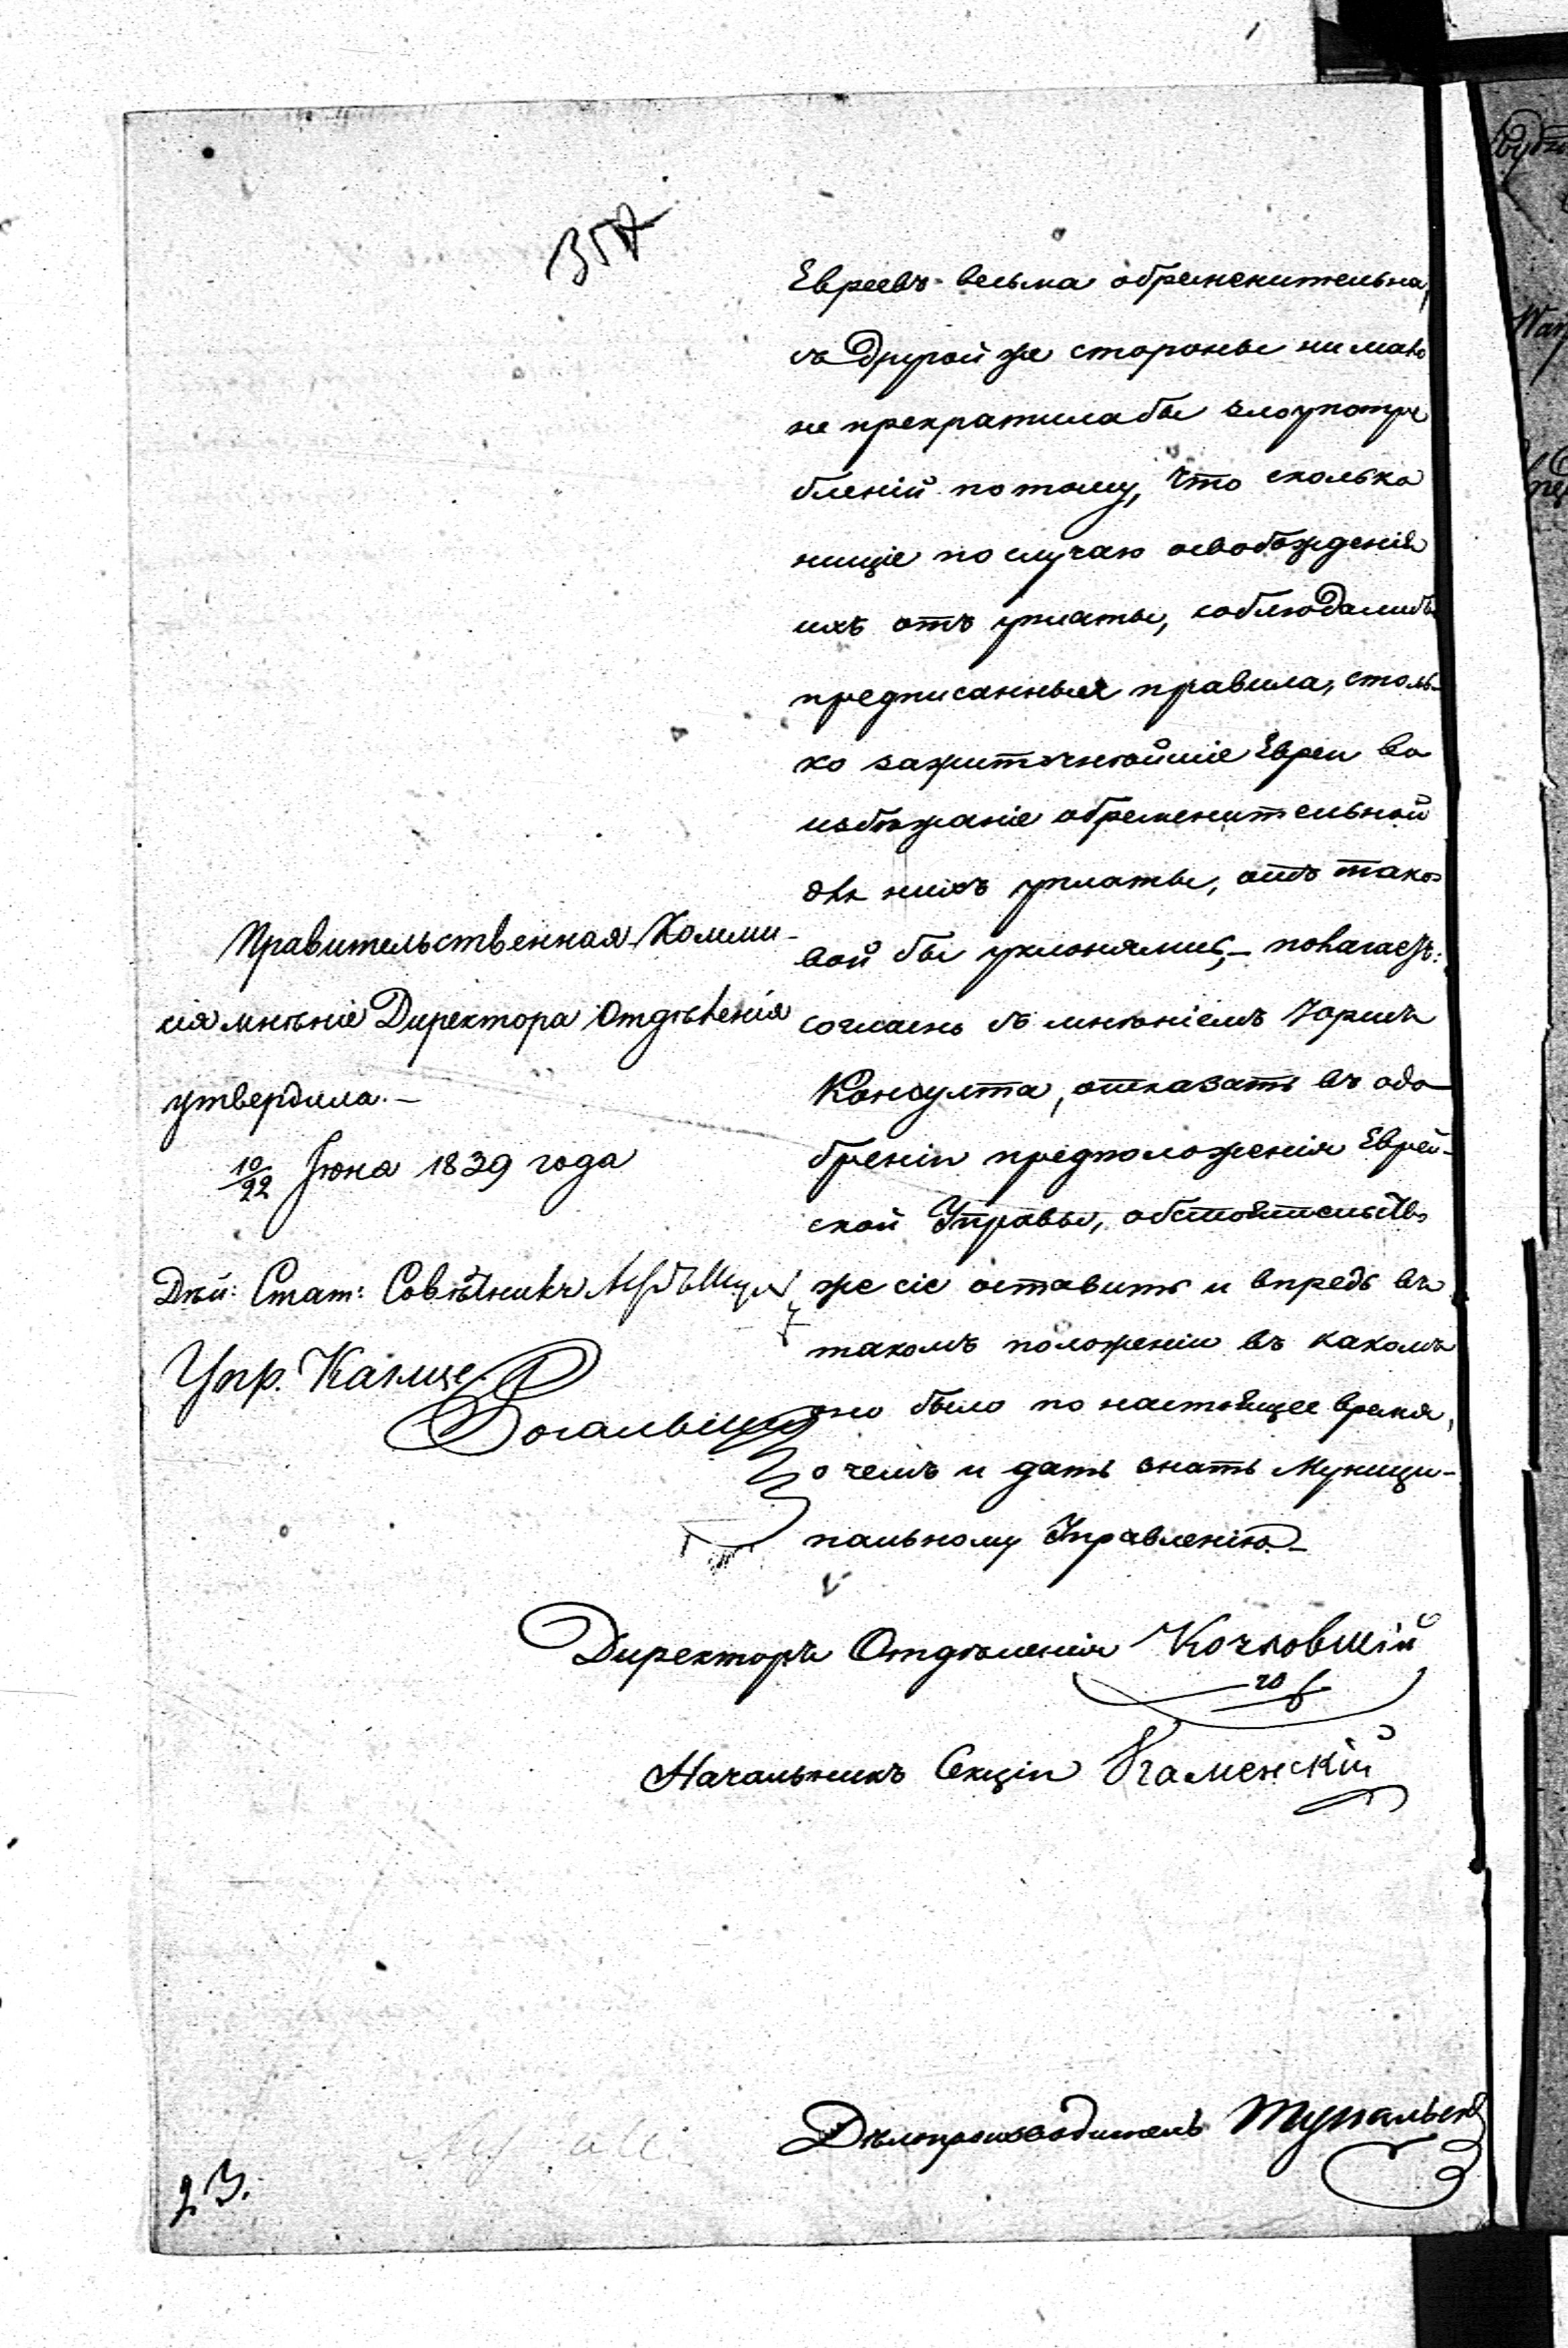 357
Евреевъ весьма обременительна,
съ другой же стороны ни мало
не прекратила бы злоупотре
бленій потому, что сколько
нищіе по случаю освобожденія
ихъ отъ уплаты, соблюдалибъ
предписанныя правила, столь-
ко зажиточнѣйшіе Евреи во
избѣжаніе обременительной
для нихъ уплаты, отъ тако-
вой бы уклонялись, – полагаетъ:
согласно съ мнѣніемъ Юрисъ
Консулта, отказать въ одо-
бреніи предположенія Еврей-
ской Управы, обстоятельство
же сіе оставить и впредь въ
такомъ положеніи въ какомъ
оно было по настоящее время,
о чемъ и дать знать Муници-
пальному Управленію. –
Правительственная Комми-
сія мнѣніе Директора Отдѣленія
утвердила. –
10/22 Іюна 1839 года
Дѣй: Стат: Совѣтникъ
Упр. Канце
Директоръ Отдѣленія
Начальникъ Секціи Каменскій
Дѣлопроизводитель
23.